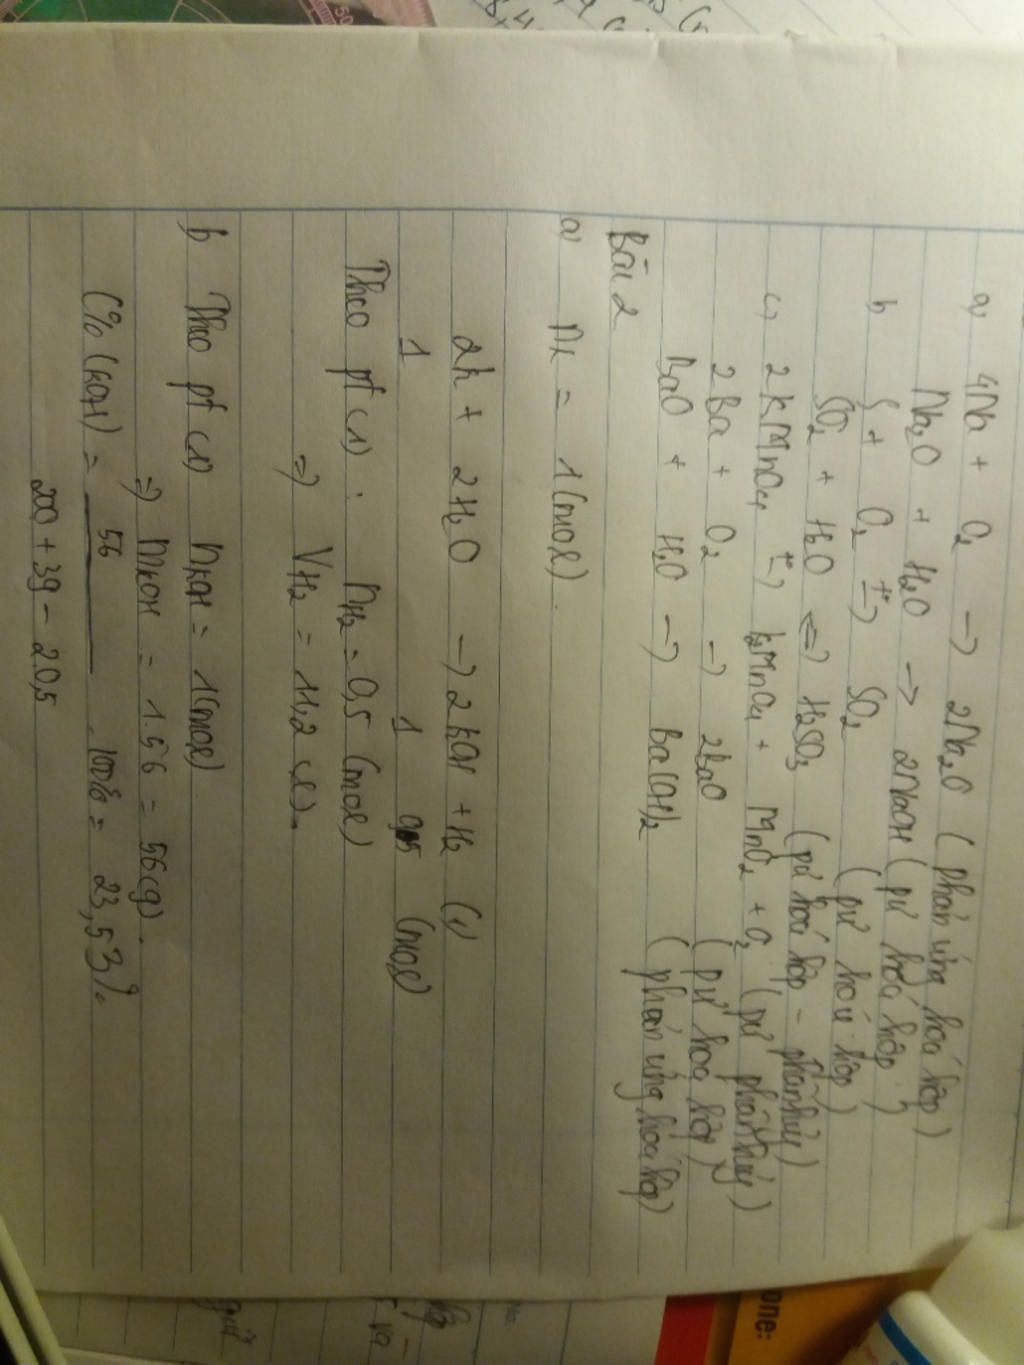 a) 4Na + O2 → 2Na2O ( phản ứng hoá hợp )
Na2O + H2O → 2NaOH ( pứ hoá hợp )
b S + O2 t°→ SO2 ( pứ hoá hợp )
SO2 + H2O ⇌ H2SO3 ( pứ hoá hợp - phân hủy )
c) 2KMnO4 t°→ K2MnO4 + MnO2 + O2 ( pứ phân hủy )
2Ba + O2 → 2BaO ( pứ hoá hợp )
BaO + H2O → Ba(OH)2 ( phản ứng hoá hợp )
Bài 2
a) nK = 1 (mol).
2K + 2H2O → 2KOH + H2 (1)
1 1 0,5 (mol)
Theo pt (1) : nH2 = 0,5 (mol)
=> VH2 = 11,2 (l).
b Theo pt (1) nKOH = 1 (mol)
=> mKOH = 1.56 = 56 (g).
C% (KOH) = 56 . 100% = 23,53%.
200 + 39 - 2.0,5
one: